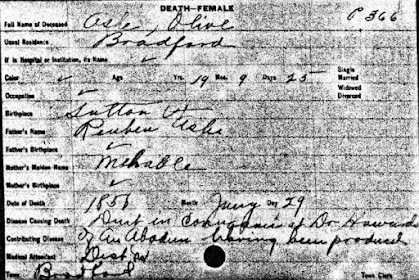 DEATH—FEMALE
P 366
Full Name of Deceased Aske, Olive
Usual Residence Bradford
If in Hospital or Institution, its Name ✓
Color ✓ Age Yrs. 19 Mos. 9 Days 25 Single
Married
Occupation ✓ Widowed
Divorced
Birthplace Sutton Vt
Father's Name Reuben Aske
Father's Birthplace ✓
Mother's Maiden Name Mehable
Mother's Birthplace ✓
Date of Death 1856 Month Day 29
Disease Causing Death Died in at Dr Howard
Contributing Disease of An having been produced
Medical Attendant
Bradford Town Clerk